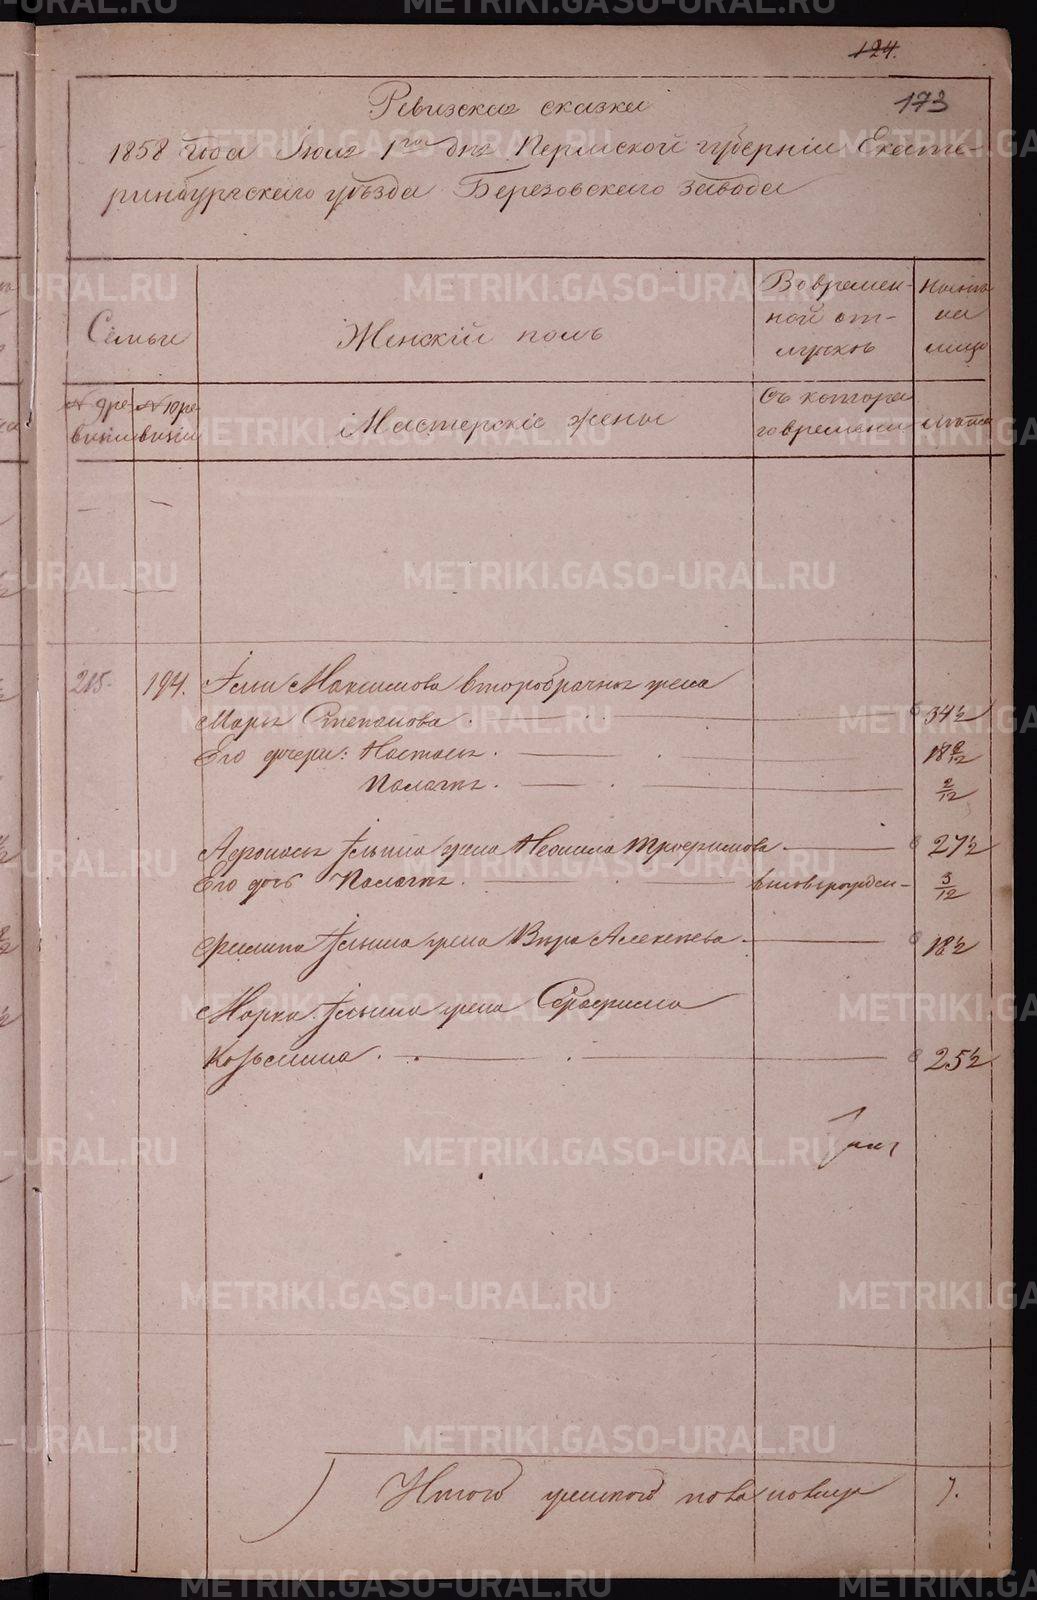 124.
173
Ревизская сказка
1858 года Июля 1го дня Пермской губерніи Екате-
ринбургскаго уѣзда Березовскаго завода
Семьи
Женскій полъ
Во времен-
ной от-
лучкѣ
Ныне
на
лицо
№ 9 ре-
визіи
№ 10 ре-
визіи
Мастерскіе жены
Съ котора
го времени
Лѣта
215. 194. Ильи Максимова второбрачная жена
Марья Степанова 34½
Его дочери: Настасья 18 9/12
Палагея 2/12
Афонасья Ильина жена Неонила Трофимова 27½
Его дочь Палагея вновьрожден- 3/12
Филипа Ильина жена Вера Алексеева 18½
Марка Ильина жена Серафима
Козьмина 25½
Итого женскаго пола на лицо 7.
METRIKI.GASO-URAL.RU